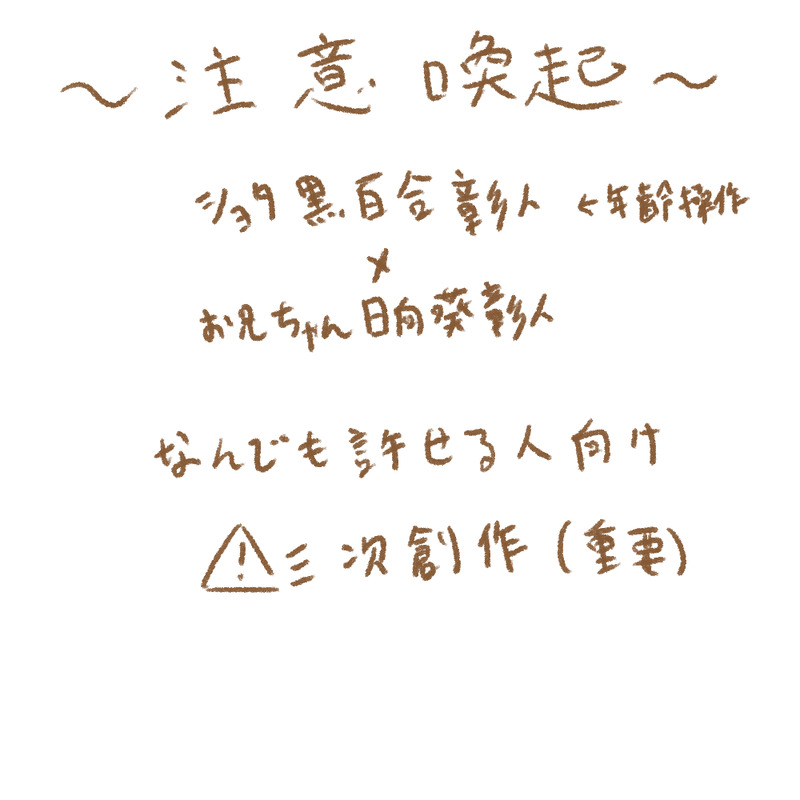 ～注意喚起～
ショタ黒百合彰人 ←年齢操作
×
お兄ちゃん日向葵彰人
なんでも許せる人向け
⚠三次創作(重要)